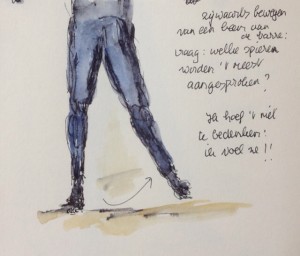 zijwaarts bewegen
van een been aan
de barre:
vraag: welke spieren
worden 't meest
aangesproken?
Je hoef 't niet
te bedenken:
ik voel ze!!